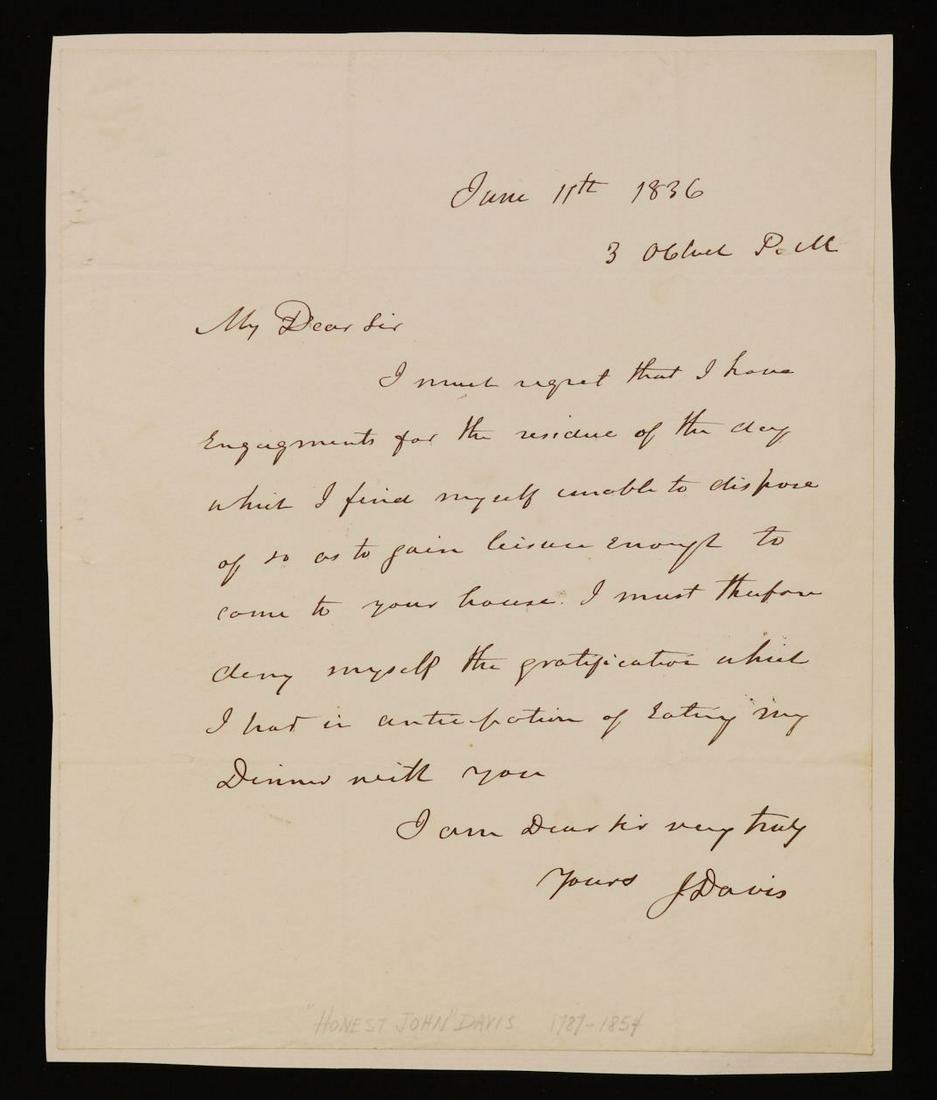 June 11th 1836
3 Oclock P. M
My Dear Sir
I much regret that I have
Engagments for the residue of the day
which I find myself unable to dispose
of so as to gain leisure enough to
come to your house. I must therefore
deny myself the gratification which
I had in anticipation of Eating my
Dinner with you
I am Dear Sir very truly
Yours J Davis
"HONEST JOHN" DAVIS 1787-1854